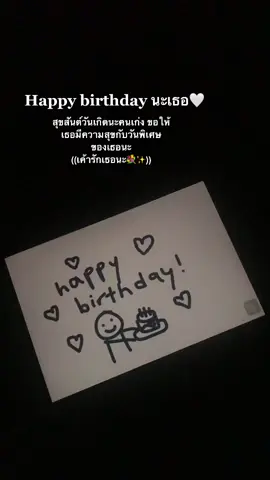 Happy birthday นะเธอ🤍
สุขสันต์วันเกิดนะคนเก่ง ขอให้
เธอมีความสุขกับวันพิเศษ
ของเธอนะ
((เค้ารักเธอนะ💐✨))
happy
birthday!